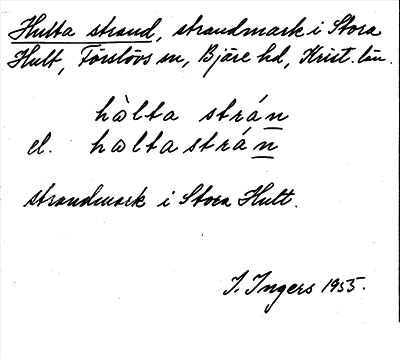 Hulta strand, strandmark i Stora
Hult, Förslövs sn, Bjäre hd, Krist. län.
hàlta strán
el. haltastrán
strandmark i Stora Hult.
I. Ingers 1955.